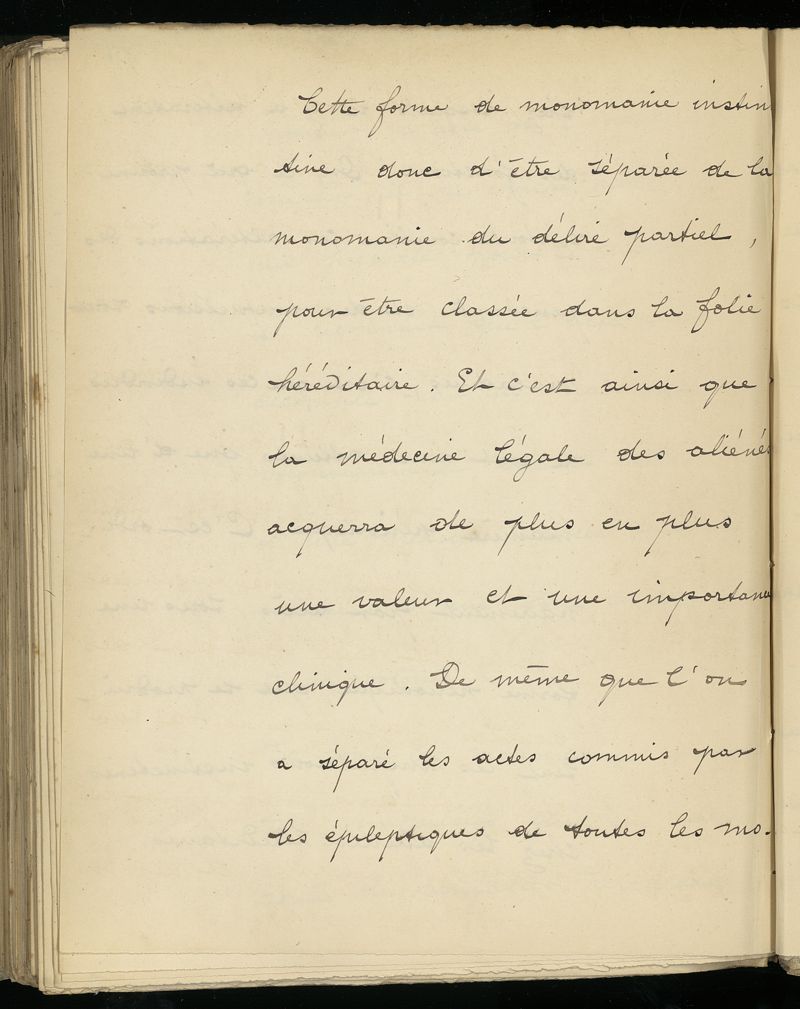 Cette forme de monomanie instin
tive donc d'être séparée de la
monomanie du délire partiel,
pour être classée dans la folie
héréditaire. Et c'est ainsi que
la médecine légale des aliénés
acquerra de plus en plus
une valeur et une importance
clinique. De même que l'on
a séparé les actes commis par
les épileptiques de toutes les mo-